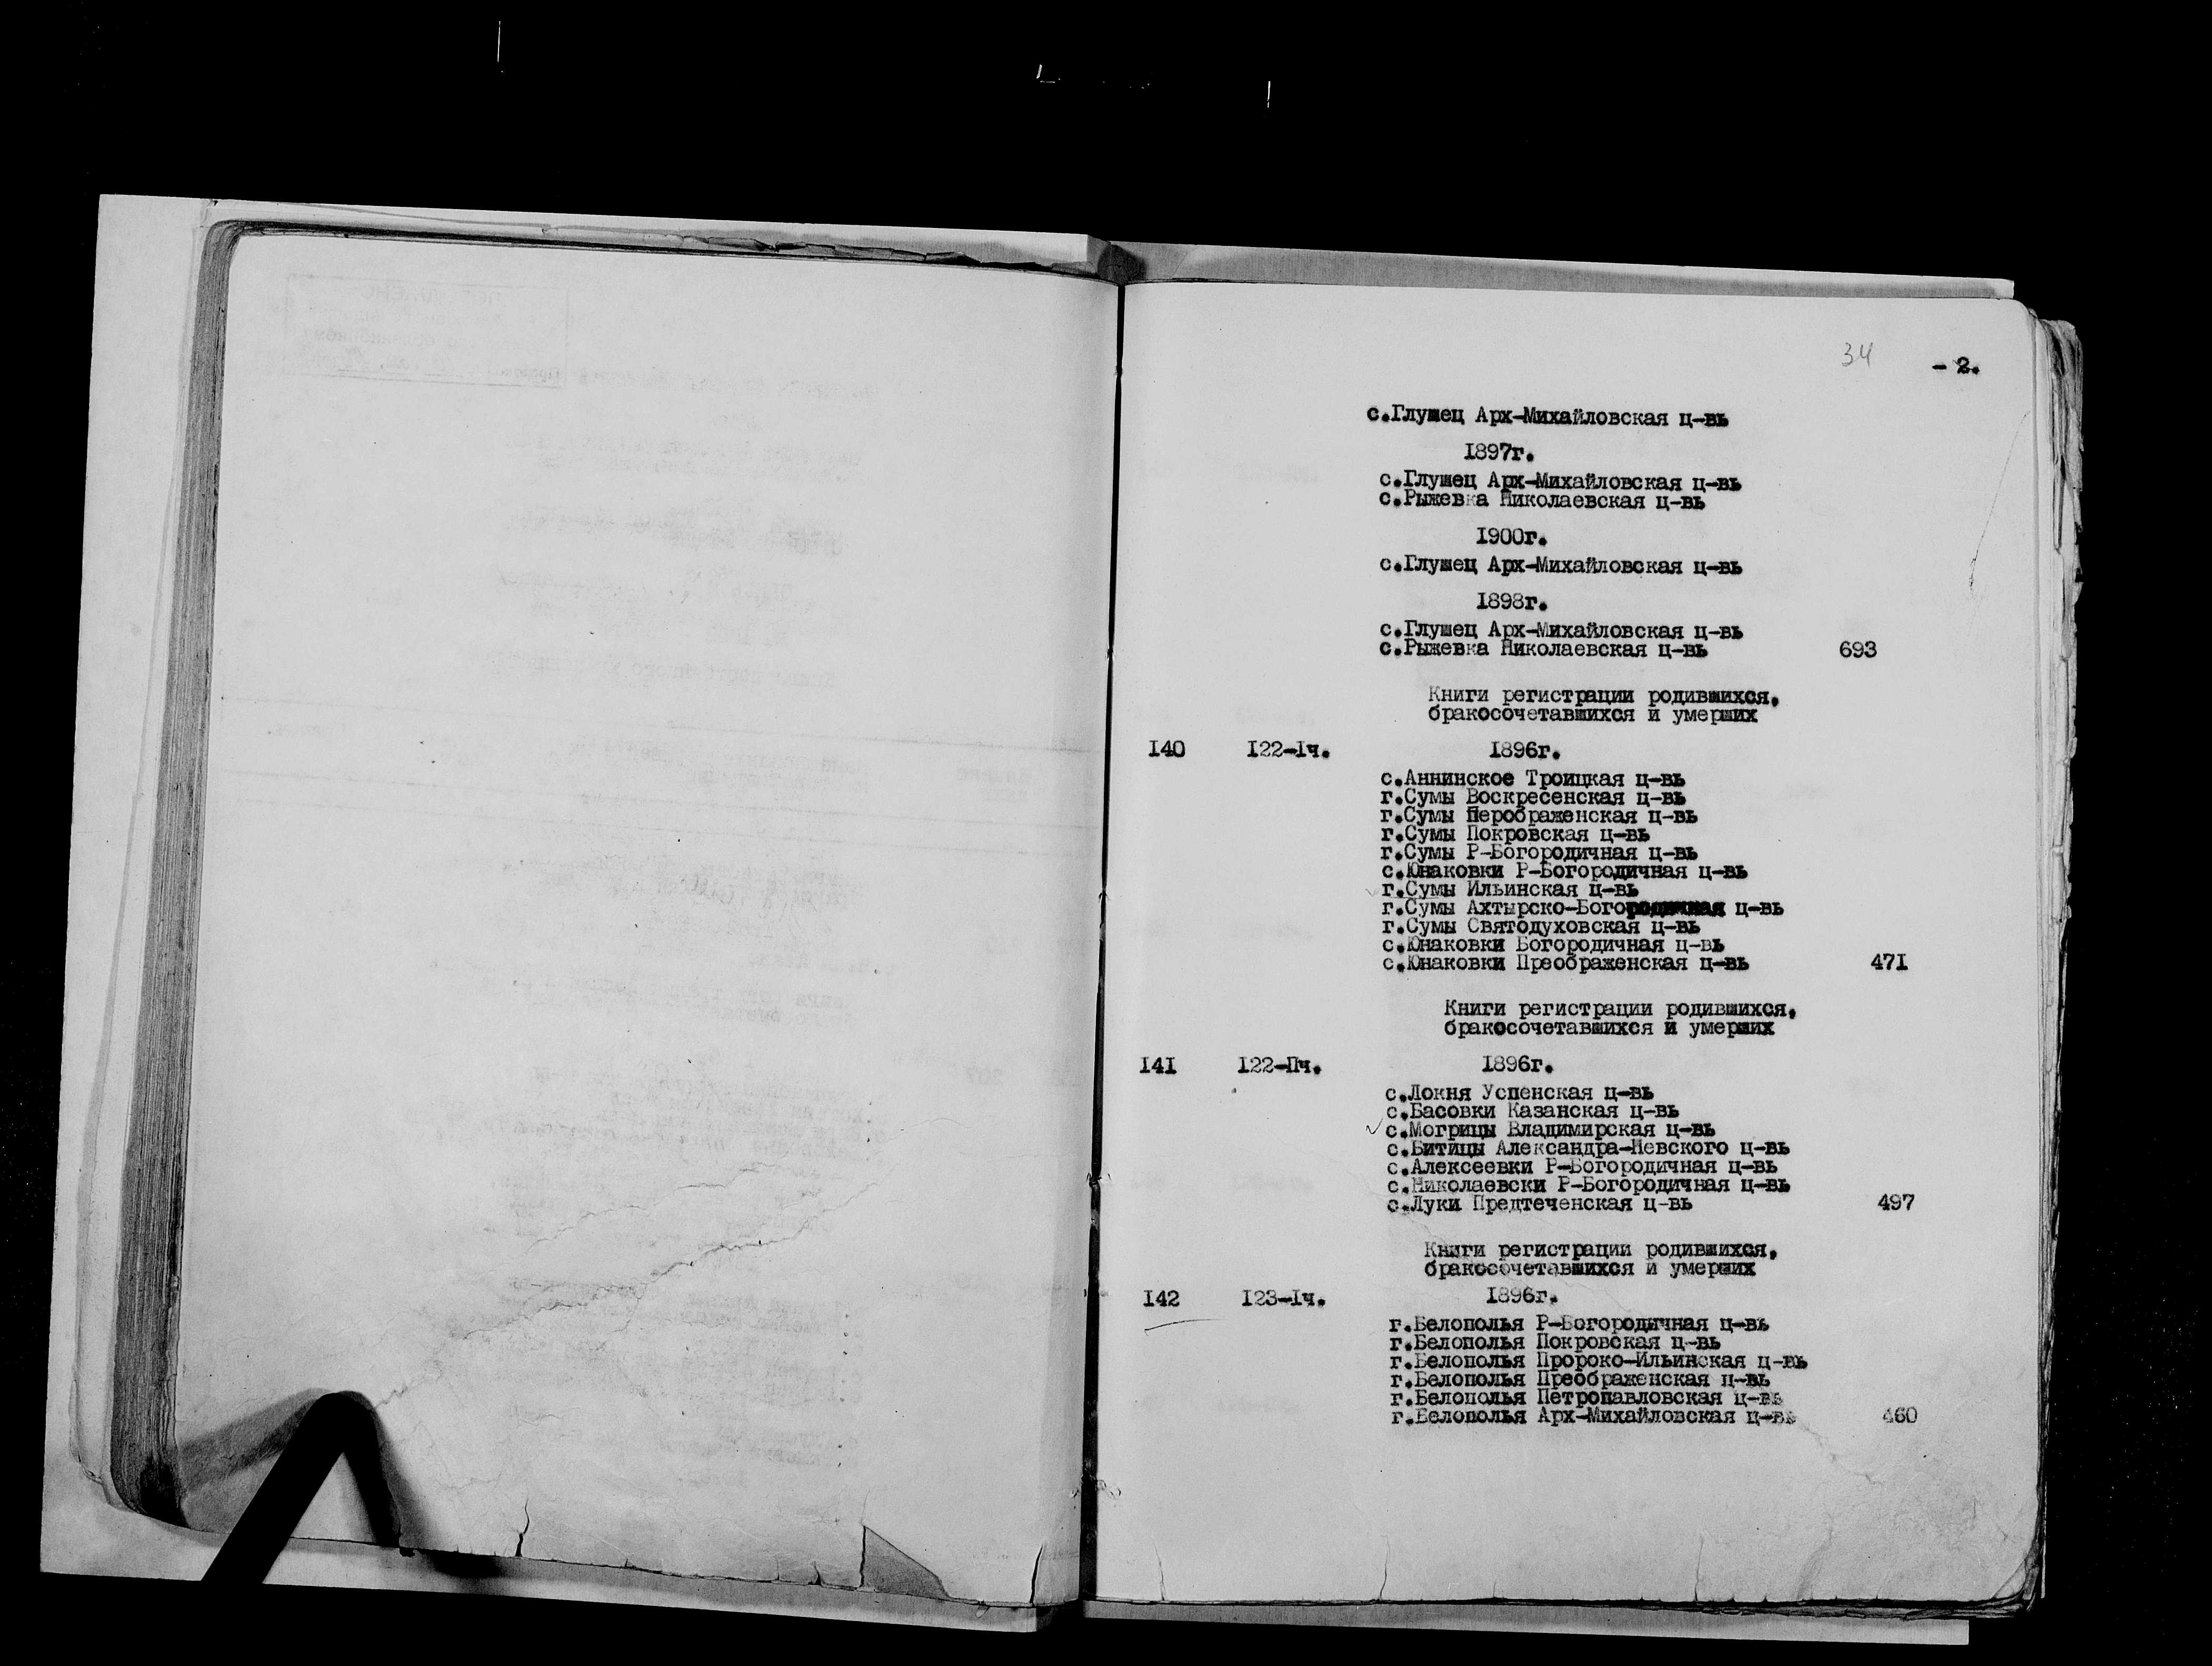 34
- 2.
с.Глушец Арх-Михайловская ц-вь
1897г.
с.Глушец Арх-Михайловская ц-вь
с.Рыжевка Николаевская ц-вь
1900г.
с.Глушец Арх-Михайловская ц-вь
1898г.
с.Глушец Арх-Михайловская ц-вь
с.Рыжевка Николаевская ц-вь 693
Книги регистрации родившихся,
бракосочетавшихся и умерших
I40 I22-Iч. I896г.
с.Аннинское Троицкая ц-вь
г.Сумы Воскресенская ц-вь
г.Сумы Перображенская ц-вь
г.Сумы Покровская ц-вь
г.Сумы Р-Богородичная ц-вь
с.Юнаковки Р-Богородичная ц-вь
г.Сумы Ильинская ц-вь
г.Сумы Ахтырско-Богородичная ц-вь
г.Сумы Святодуховская ц-вь
с.Юнаковки Богородичная ц-вь
с.Юнаковки Преображенская ц-вь 47I
Книги регистрации родившихся,
бракосочетавшихся и умерших
I4I I22-Пч. I896г.
с.Локня Успенская ц-вь
с.Басовки Казанская ц-вь
с.Могрицы Владимирская ц-вь
с.Битицы Александра-Невского ц-вь
с.Алексеевки Р-Богородичная ц-вь
с.Николаевски Р-Богородичная ц-вь
с.Луки Предтеченская ц-вь 497
Книги регистрации родившихся,
бракосочетавшихся и умерших
I42 I23-Iч. I896г.
г.Белополья Р-Богородичная ц-вь
г.Белополья Покровская ц-вь
г.Белополья Пророко-Ильинская ц-вь
г.Белополья Преображенская ц-вь
г.Белополья Петропавловская ц-вь
г.Белополья Арх-Михайловская ц-вь 460